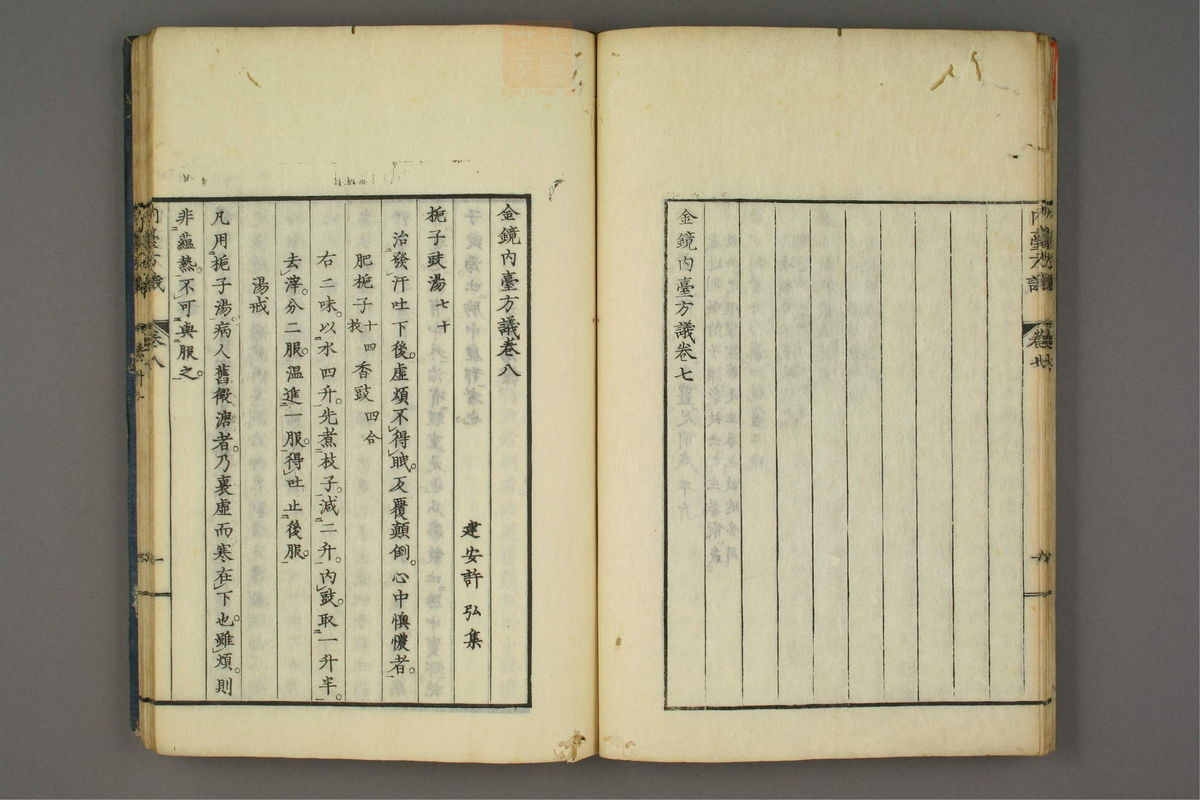 金鏡內臺方議卷七
金鏡內臺方議卷八
建安許弘集
梔子豉湯七十
治發汗吐下後。虛煩不得眠。反覆顛倒。心中懊憹者。
肥梔子十四枚 香豉四合
右二味。以水四升。先煮枝子。減二升。內豉。取一升半。
去滓。分二服。溫進一服。得吐止後服。
湯戒
凡用梔子湯。病人舊微溏者。乃裏虛而寒在下也。雖煩。則
非蘊熱。不可與服之。